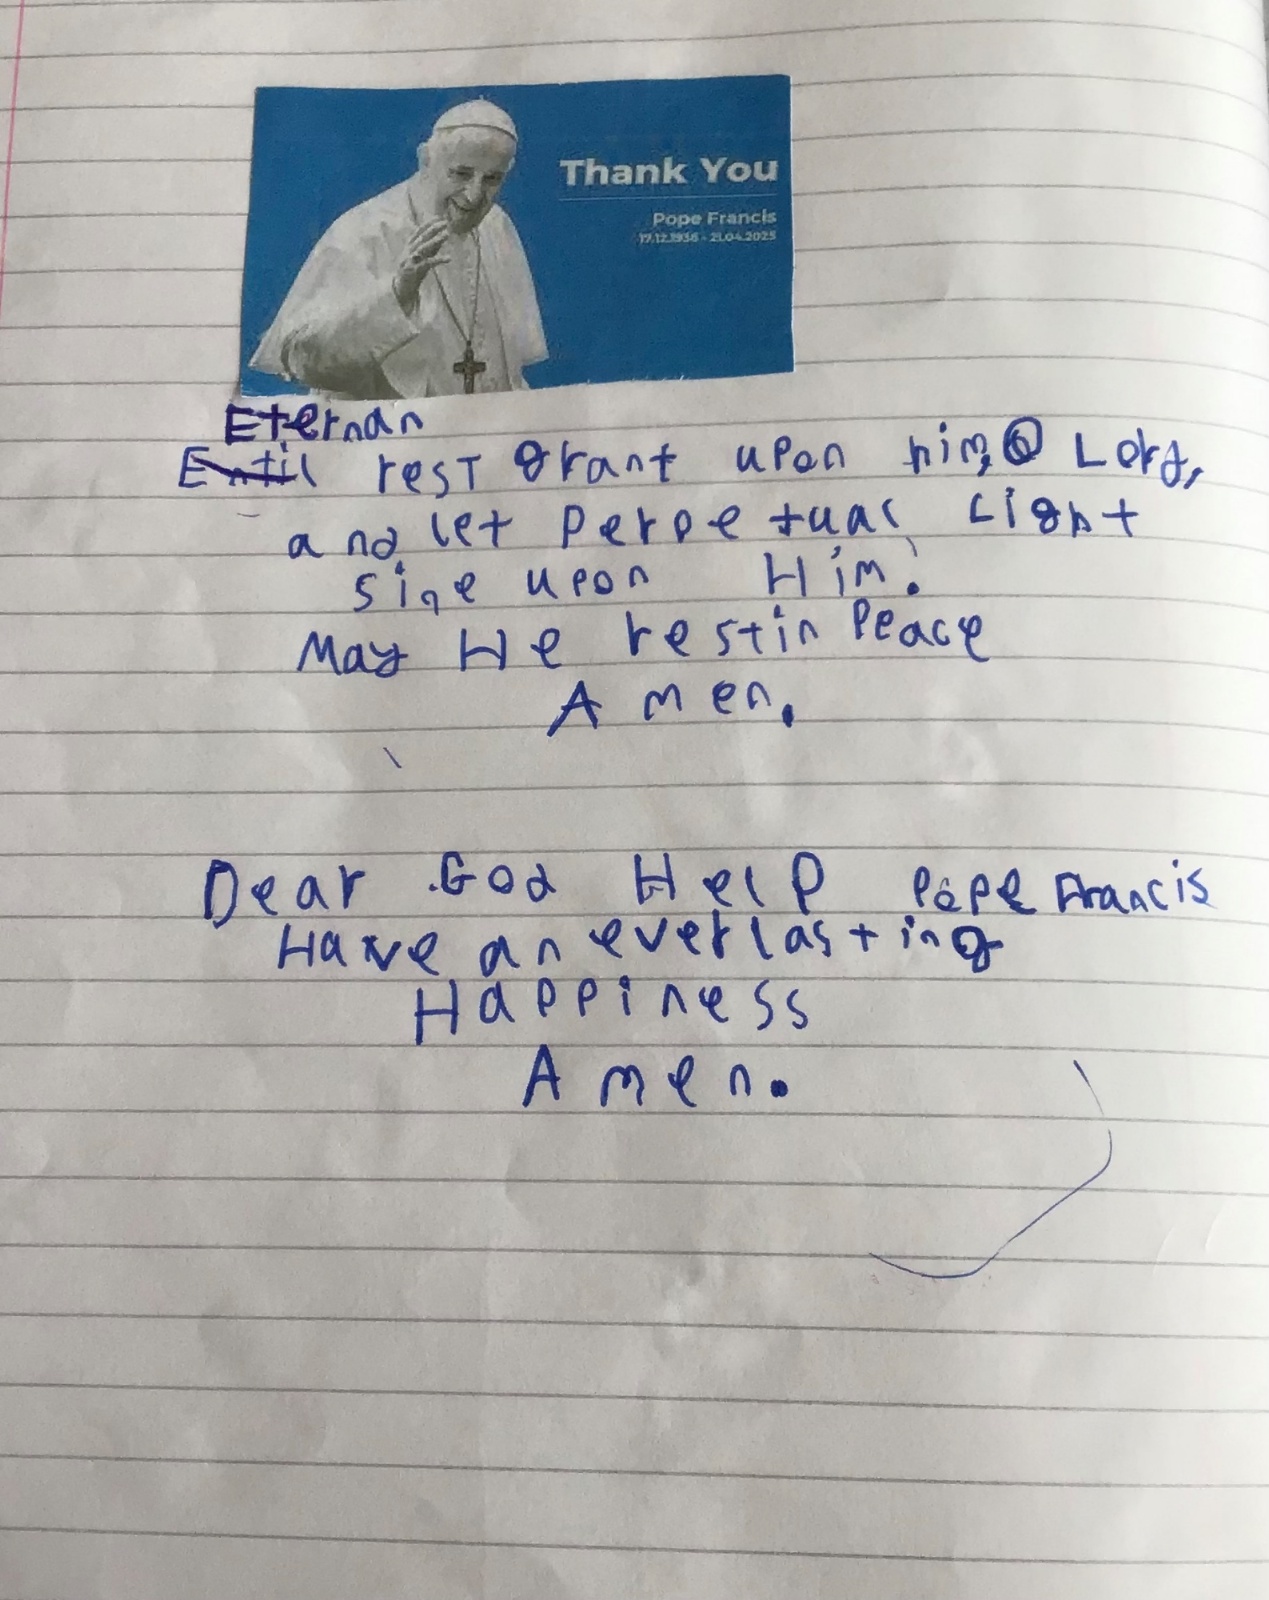 Thank You
Pope Francis
17.12.1936 - 21.04.2025
Eternan
Entil rest Grant upon him, O Lord,
and let Perpetual Light
sine upon Him.
May He rest in Peace
Amen.
Dear God Help Pope Francis
Have an everlasting
Happiness
Amen.